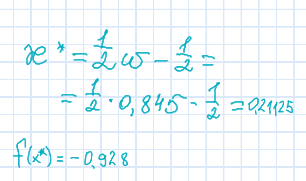 x* = 1/2 w - 1/2 =
= 1/2 · 0,845 - 1/2 = 0,21125
f(x*) = -0,928